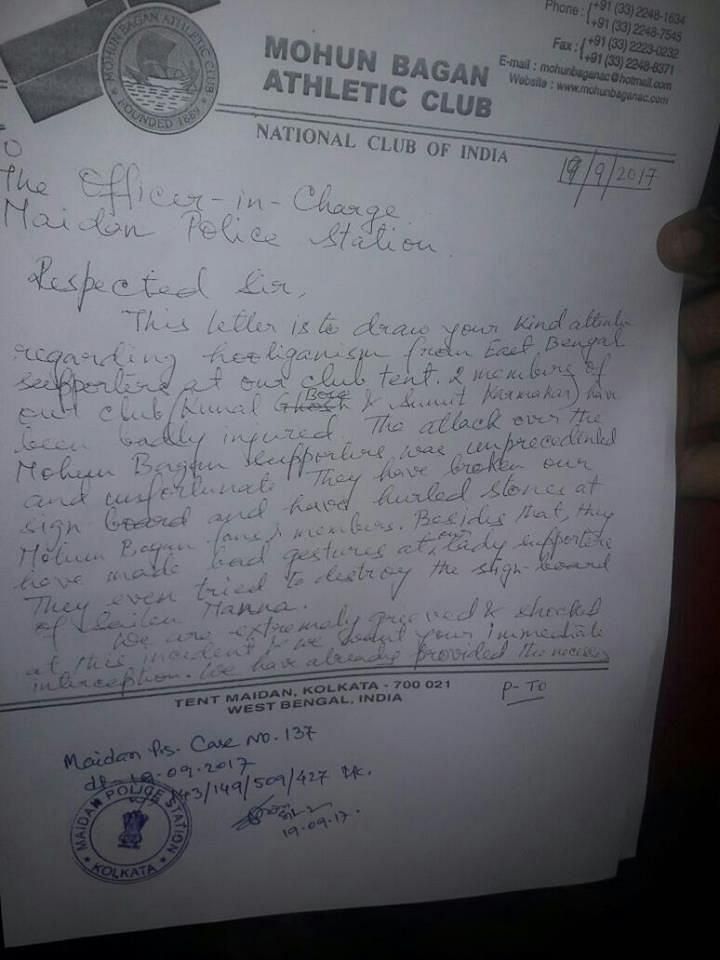 MOHUN BAGAN ATHLETIC CLUB
FOUNDED 1889
MOHUN BAGAN
ATHLETIC CLUB
NATIONAL CLUB OF INDIA
Phone : +91 (33) 2248-1634
+91 (33) 2248-7545
Fax : +91 (33) 2223-0232
+91 (33) 2248-8371
E-mail : mohunbaganac@hotmail.com
Website : www.mohunbaganac.com
19/9/2017
The Officer-in-Charge
Maidan Police Station.
Respected Sir,
This letter is to draw your kind
regarding hooliganism from East Bengal
supporters at our club tent. 2 members of
our club (Kunal Bose & Sumit Karmakar) have
been badly injured. The attack over the
Mohun Bagan supporters was unprecedented
and unfortunate. They have broken our
sign board and have hurled stones at
Mohun Bagan fans & members. Besides that, they
have made bad gestures at our lady supporters
They even tried to destroy the sign-board
of Sailen Manna.
We are extremely grieved & shocked
at this incident & we want your immediate
interception. We have already provided the
P-TO
TENT MAIDAN, KOLKATA - 700 021
WEST BENGAL, INDIA
Maidan P.S. Case No. 137
dt- 19.09.2017
143/149/509/427
19.09.17.
MAIDAN POLICE STATION
KOLKATA